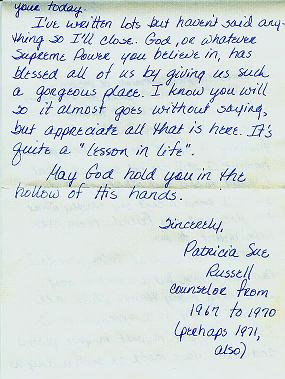 your today.
I've written lots but haven't said any-
thing so I'll close. God, or whatever
Supreme Power you believe in, has
blessed all of us by giving us such
a gorgeous place. I know you will
so it almost goes without saying,
but appreciate all that is here. It's
quite a "lesson in life".
May God hold you in the
hollow of His hands.
Sincerely,
Patricia Sue
Russell
Counselor from
1967 to 1970
(perhaps 1971,
also)